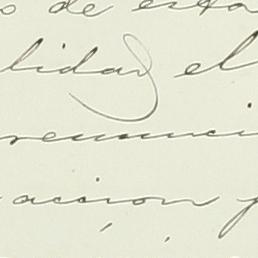 s de esta
lidad el
renunci
acion p